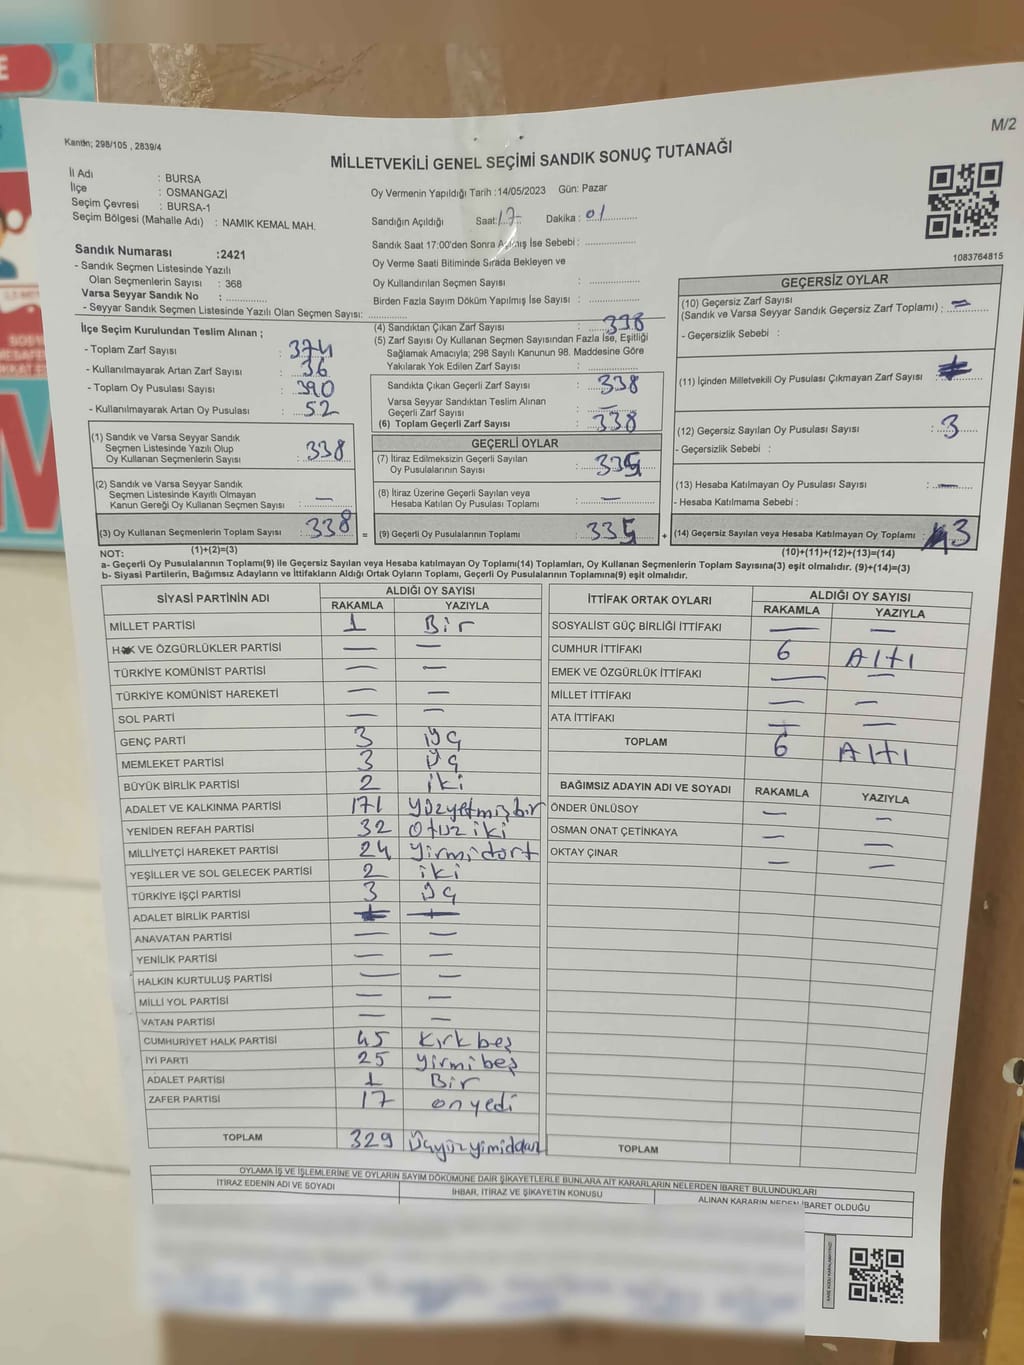 M/2
Kanun; 298/105 , 2839/4
MİLLETVEKİLİ GENEL SEÇİMİ SANDIK SONUÇ TUTANAĞI
İl Adı : BURSA
İlçe : OSMANGAZİ
Seçim Çevresi : BURSA-1
Seçim Bölgesi (Mahalle Adı) : NAMIK KEMAL MAH.
Oy Vermenin Yapıldığı Tarih :14/05/2023 Gün: Pazar
Sandığın Açıldığı Saat: 17 Dakika : 01
Sandık Saat 17:00'den Sonra Açılmış İse Sebebi :
Oy Verme Saati Bitiminde Sırada Bekleyen ve
Oy Kullandırılan Seçmen Sayısı :
Birden Fazla Sayım Döküm Yapılmış İse Sayısı :
1083764815
Sandık Numarası :2421
- Sandık Seçmen Listesinde Yazılı
Olan Seçmenlerin Sayısı : 368
Varsa Seyyar Sandık No :
- Seyyar Sandık Seçmen Listesinde Yazılı Olan Seçmen Sayısı:
İlçe Seçim Kurulundan Teslim Alınan ;
- Toplam Zarf Sayısı : 374
- Kullanılmayarak Artan Zarf Sayısı : 36
- Toplam Oy Pusulası Sayısı : 390
- Kullanılmayarak Artan Oy Pusulası : 52
(1) Sandık ve Varsa Seyyar Sandık
Seçmen Listesinde Yazılı Olup
Oy Kullanan Seçmenlerin Sayısı : 338
(2) Sandık ve Varsa Seyyar Sandık
Seçmen Listesinde Kayıtlı Olmayan
Kanun Gereği Oy Kullanan Seçmen Sayısı : —
(3) Oy Kullanan Seçmenlerin Toplam Sayısı : 338
(1)+(2)=(3)
(4) Sandıktan Çıkan Zarf Sayısı : 338
(5) Zarf Sayısı Oy Kullanan Seçmen Sayısından Fazla İse, Eşitliği
Sağlamak Amacıyla; 298 Sayılı Kanunun 98. Maddesine Göre
Yakılarak Yok Edilen Zarf Sayısı :
Sandıkta Çıkan Geçerli Zarf Sayısı : 338
Varsa Seyyar Sandıktan Teslim Alınan
Geçerli Zarf Sayısı : —
(6) Toplam Geçerli Zarf Sayısı : 338
GEÇERLİ OYLAR
(7) İtiraz Edilmeksizin Geçerli Sayılan
Oy Pusulalarının Sayısı : 335
(8) İtiraz Üzerine Geçerli Sayılan veya
Hesaba Katılan Oy Pusulası Toplamı : —
= (9) Geçerli Oy Pusulalarının Toplamı : 335
GEÇERSİZ OYLAR
(10) Geçersiz Zarf Sayısı
(Sandık ve Varsa Seyyar Sandık Geçersiz Zarf Toplamı) : —
- Geçersizlik Sebebi :
(11) İçinden Milletvekili Oy Pusulası Çıkmayan Zarf Sayısı :
(12) Geçersiz Sayılan Oy Pusulası Sayısı : 3
- Geçersizlik Sebebi :
(13) Hesaba Katılmayan Oy Pusulası Sayısı : —
- Hesaba Katılmama Sebebi :
+ (14) Geçersiz Sayılan veya Hesaba Katılmayan Oy Toplamı : 3
(10)+(11)+(12)+(13)=(14)
NOT:
a- Geçerli Oy Pusulalarının Toplamı(9) ile Geçersiz Sayılan veya Hesaba katılmayan Oy Toplamı(14) Toplamları, Oy Kullanan Seçmenlerin Toplam Sayısına(3) eşit olmalıdır. (9)+(14)=(3)
b- Siyasi Partilerin, Bağımsız Adayların ve İttifakların Aldığı Ortak Oyların Toplamı, Geçerli Oy Pusulalarının Toplamına(9) eşit olmalıdır.
SİYASİ PARTİNİN ADI ALDIĞI OY SAYISI
RAKAMLA YAZIYLA
MİLLET PARTİSİ 1 Bir
HAK VE ÖZGÜRLÜKLER PARTİSİ — —
TÜRKİYE KOMÜNİST PARTİSİ — —
TÜRKİYE KOMÜNİST HAREKETİ — —
SOL PARTİ — —
GENÇ PARTİ 3 üç
MEMLEKET PARTİSİ 3 üç
BÜYÜK BİRLİK PARTİSİ 2 iki
ADALET VE KALKINMA PARTİSİ 171 yüzyetmişbir
YENİDEN REFAH PARTİSİ 32 otuz iki
MİLLİYETÇİ HAREKET PARTİSİ 24 yirmidört
YEŞİLLER VE SOL GELECEK PARTİSİ 2 iki
TÜRKİYE İŞÇİ PARTİSİ 3 üç
ADALET BİRLİK PARTİSİ — —
ANAVATAN PARTİSİ — —
YENİLİK PARTİSİ — —
HALKIN KURTULUŞ PARTİSİ — —
MİLLİ YOL PARTİSİ — —
VATAN PARTİSİ — —
CUMHURİYET HALK PARTİSİ 45 kırkbeş
İYİ PARTİ 25 yirmibeş
ADALET PARTİSİ 1 Bir
ZAFER PARTİSİ 17 onyedi
TOPLAM 329 üçyüzyirmidokuz
İTTİFAK ORTAK OYLARI ALDIĞI OY SAYISI
RAKAMLA YAZIYLA
SOSYALİST GÜÇ BİRLİĞİ İTTİFAKI — —
CUMHUR İTTİFAKI 6 Altı
EMEK VE ÖZGÜRLÜK İTTİFAKI — —
MİLLET İTTİFAKI — —
ATA İTTİFAKI — —
TOPLAM 6 Altı
BAĞIMSIZ ADAYIN ADI VE SOYADI RAKAMLA YAZIYLA
ÖNDER ÜNLÜSOY — —
OSMAN ONAT ÇETİNKAYA — —
OKTAY ÇINAR — —
TOPLAM
OYLAMA İŞ VE İŞLEMLERİNE VE OYLARIN SAYIM DÖKÜMÜNE DAİR ŞİKAYETLERLE BUNLARA AİT KARARLARIN NELERDEN İBARET BULUNDUKLARI
İTİRAZ EDENİN ADI VE SOYADI İHBAR, İTİRAZ VE ŞİKAYETİN KONUSU ALINAN KARARIN NEDEN İBARET OLDUĞU